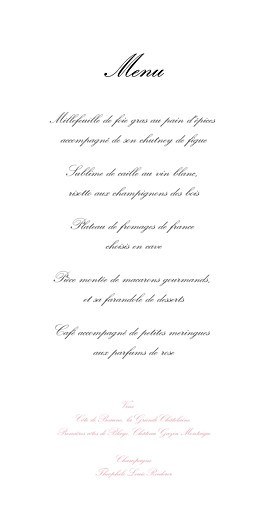 Menu
Millefeuille de foie gras au pain d'épices
accompagné de son chutney de figue
Sublime de caille au vin blanc,
risotto aux champignons des bois
Plateau de fromages de france
choisis en cave
Pièce montée de macarons gourmands,
et sa farandole de desserts
Café accompagné de petites meringues
aux parfums de rose
Vins
Côte de Beaune, la Grande Châtelaine
Premières côtes de Blaye, Château
Champagne
Théophile Louis Roederer